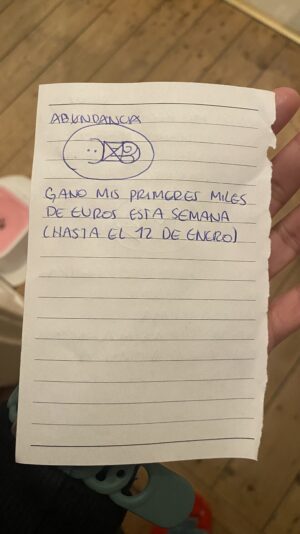 ABUNDANCIA
GANO MIS PRIMEROS MILES
DE EUROS ESTA SEMANA
(HASTA EL 12 DE ENERO)